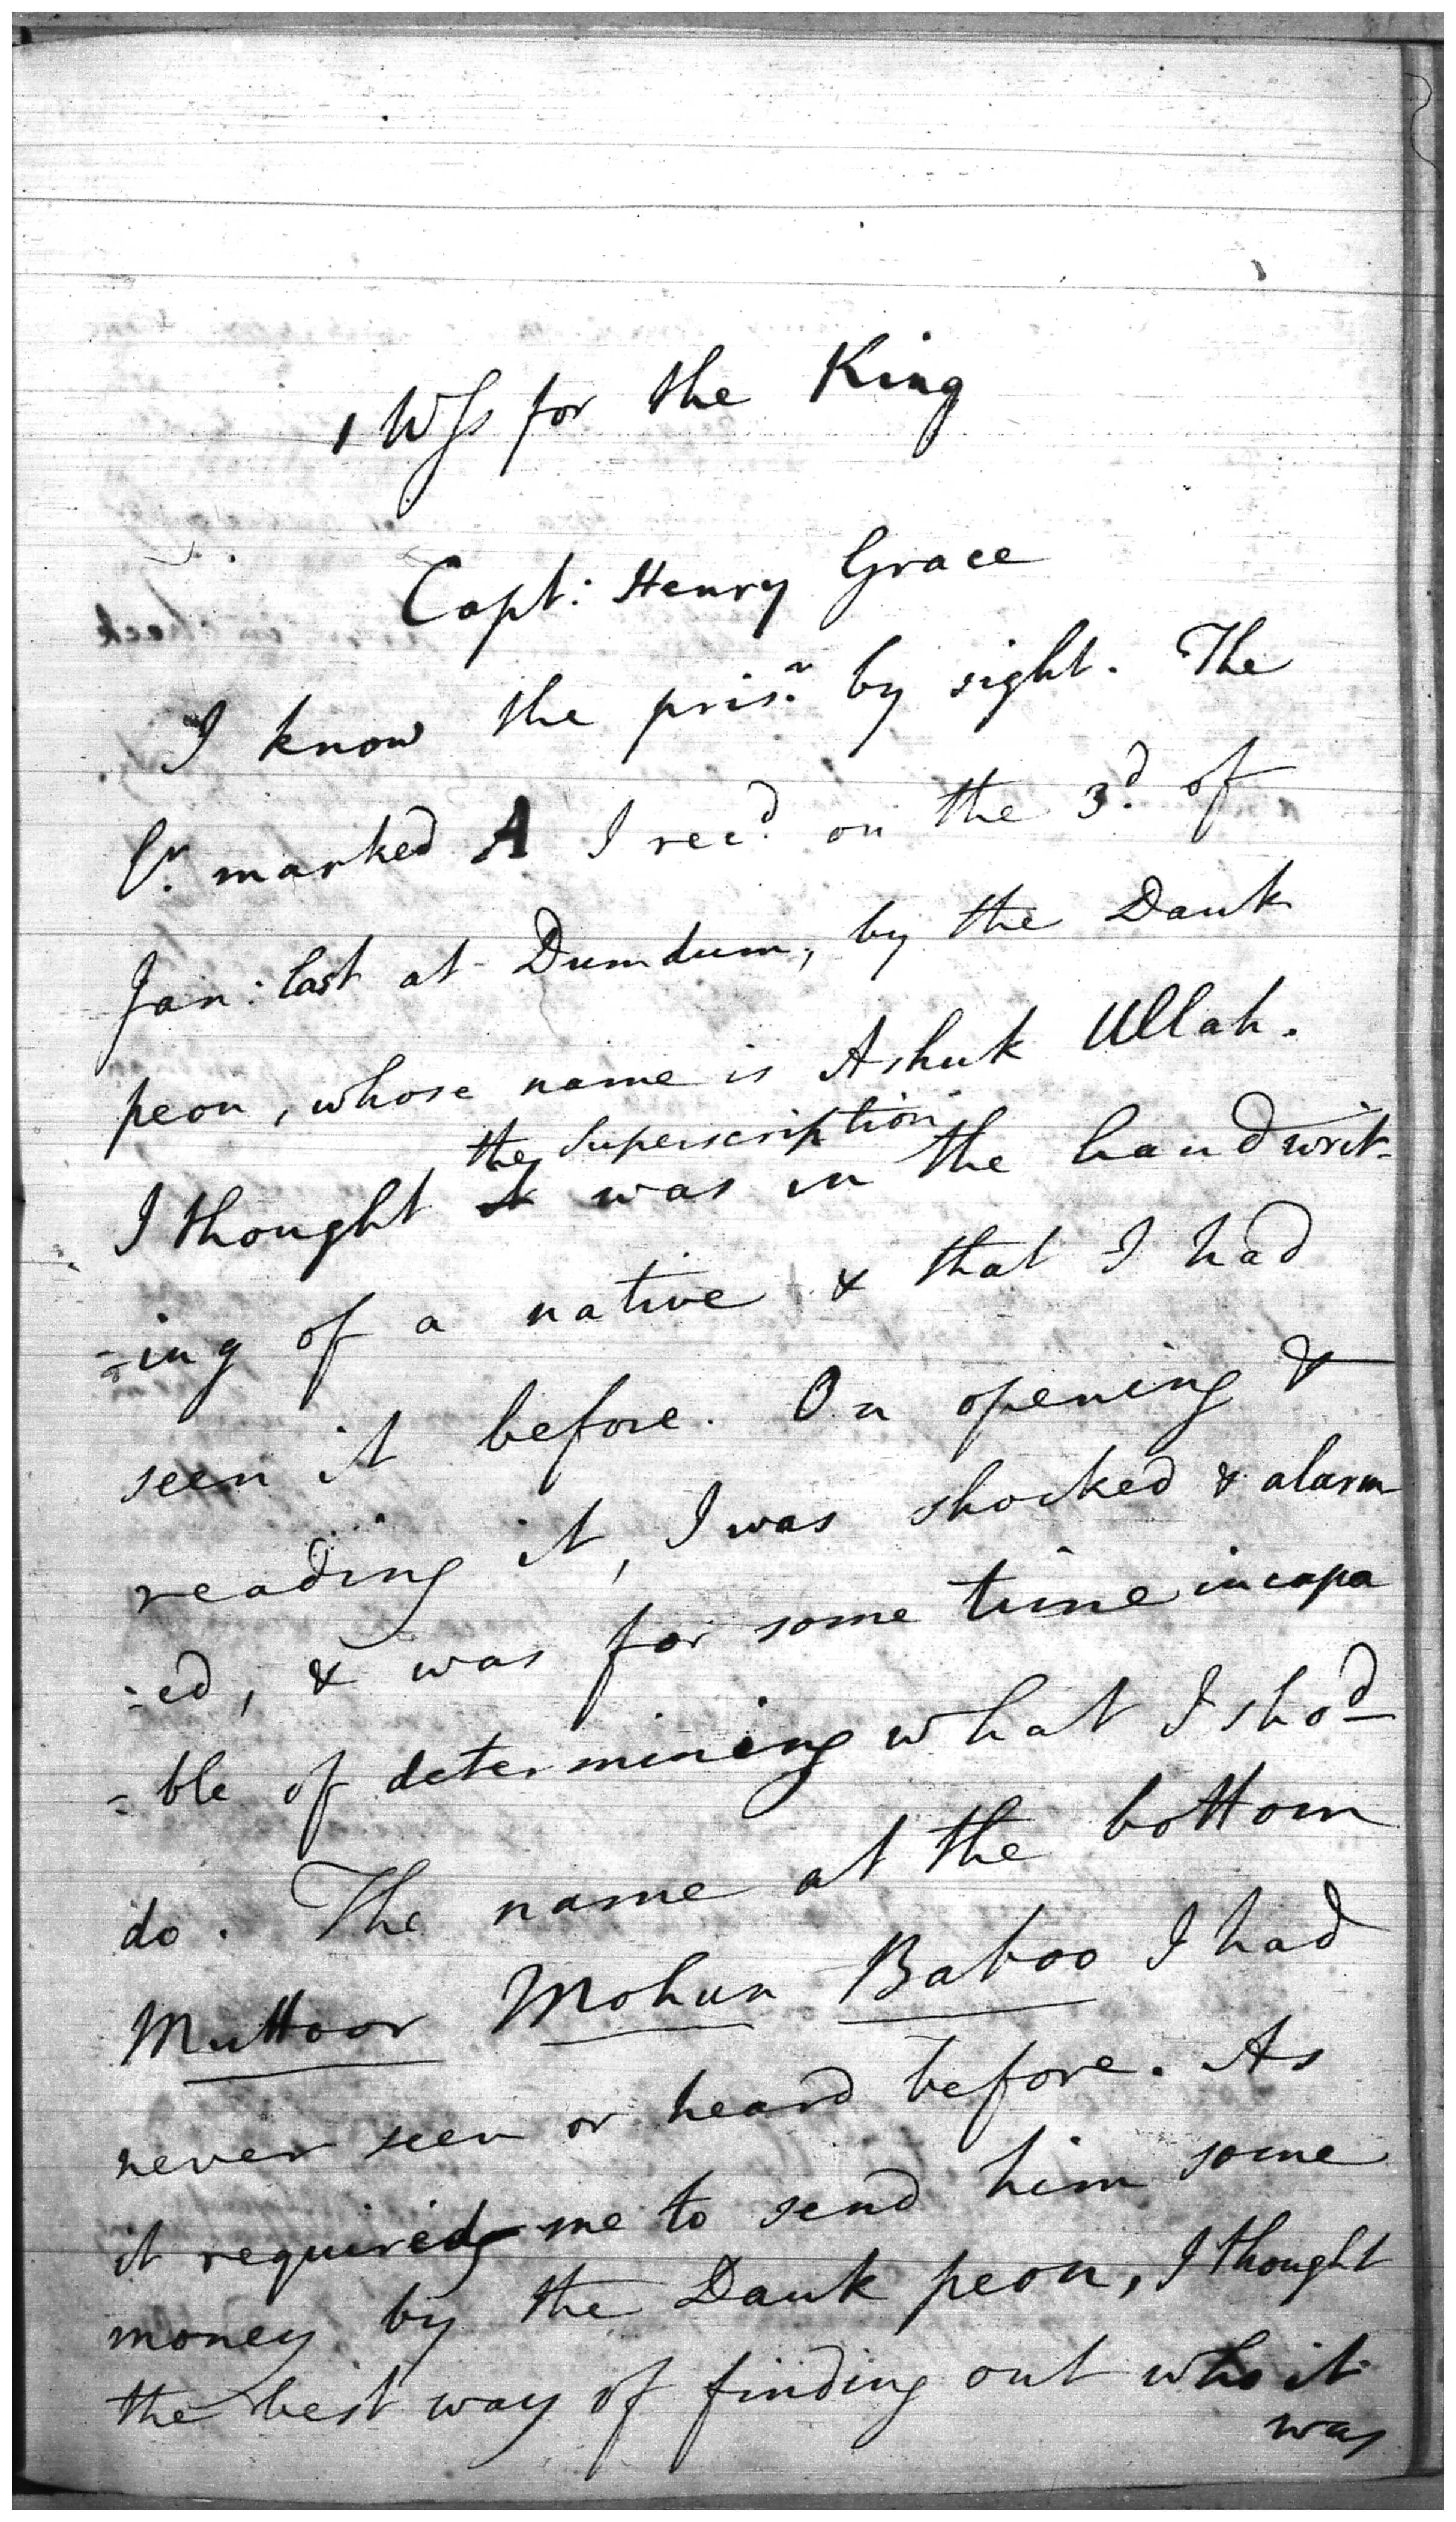 1 Wss for the King
Capt: Henry Grace
I know the prisr. by sight. The
lr. marked A I recd. on the 3d. of
Jan: last at Dumdum, by the Dauk
peon, whose name is Ashuk Ullah.
the superscription
I thought it was in the handwrit-
-ing of a native & that I had
seen it before. On opening &
reading it, I was shocked & alarm
-ed, & was for some time incapa
-ble of determining what I shod
do. The name at the bottom
Muttoor Mohun Baboo I had
never seen or heard before. As
it required me to send him some
money by the Dauk peon, I thought
the best way of finding out who it
was